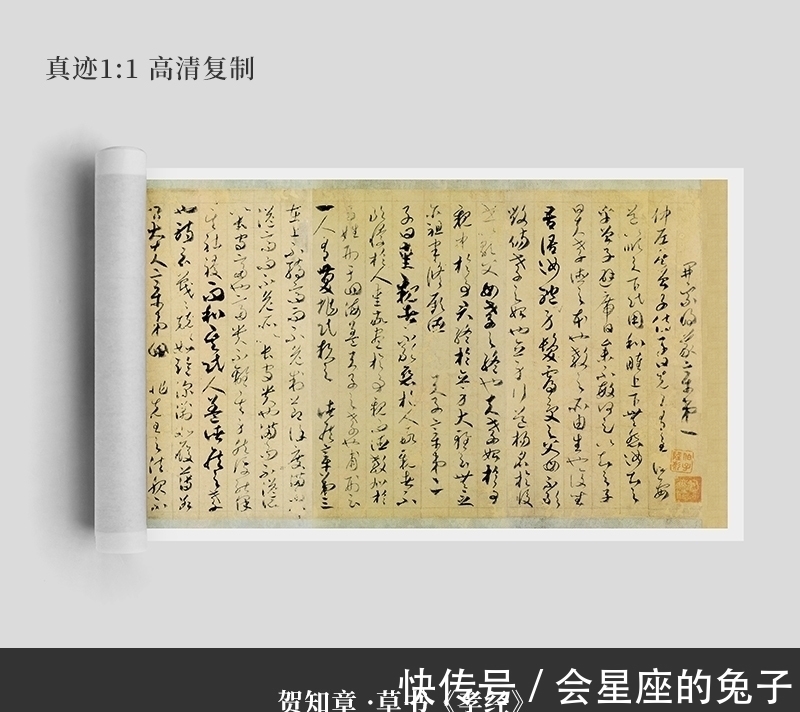 真迹1:1 高清复制
開宗明義章第一
仲尼居曾子侍子曰先王有至德要
道以順天下民用和睦上下無怨汝知之
乎曾子避席曰參不敏何足以知之子
曰夫孝德之本也教之所由生也復坐
吾語汝身體髮膚受之父母不敢
毀傷孝之始也立身行道揚名於後
世以顯父母孝之終也夫孝始於事
親中於事君終於立身大雅云無念
爾祖聿脩厥德 天子章第二
子曰愛親者不敢惡於人敬親者不
敢慢於人愛敬盡於事親而德教加於
百姓刑于四海蓋天子之孝也甫刑云
一人有慶兆民賴之 諸侯章第三
在上不驕高而不危制節謹度滿而不
溢高而不危所以長守貴也滿而不溢所
以長守富也富貴不離其身然後能保
其社稷而和其民人蓋諸侯之孝
也詩云戰戰兢兢如臨深淵如履薄冰
卿大夫章第四 非先王之法服不
贺知章·草书《孝经》
快传号 / 会星座的兔子